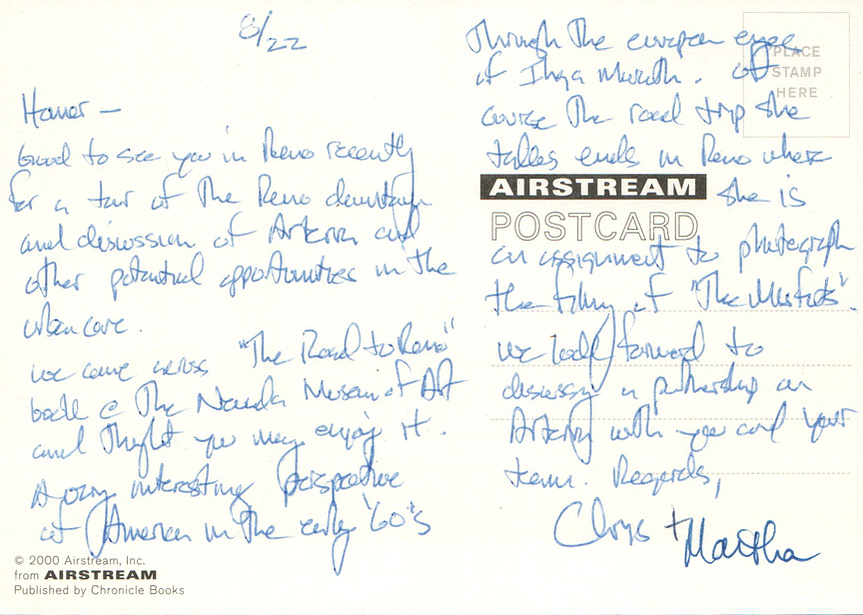 8/22
Homer —
Good to see you in Reno recently
for a tour of the Reno downtown
and discussion of Artown and
other potential opportunities in the
urban core.
We came across "The Road to Reno"
book @ The Nevada Museum of Art
and thought you may enjoy it.
A very interesting perspective
of America in the early '60's
© 2000 Airstream, Inc.
from AIRSTREAM
Published by Chronicle Books
through the european eyes
of Inga Morath. Of
course the road trip she
takes ends in Reno where
she is
on assignment to photograph
the filming of "The Misfits".
We look forward to
discussing a partnership on
with you and your
team. Regards,
Chrys + Martha
PLACE
STAMP
HERE
AIRSTREAM
POSTCARD